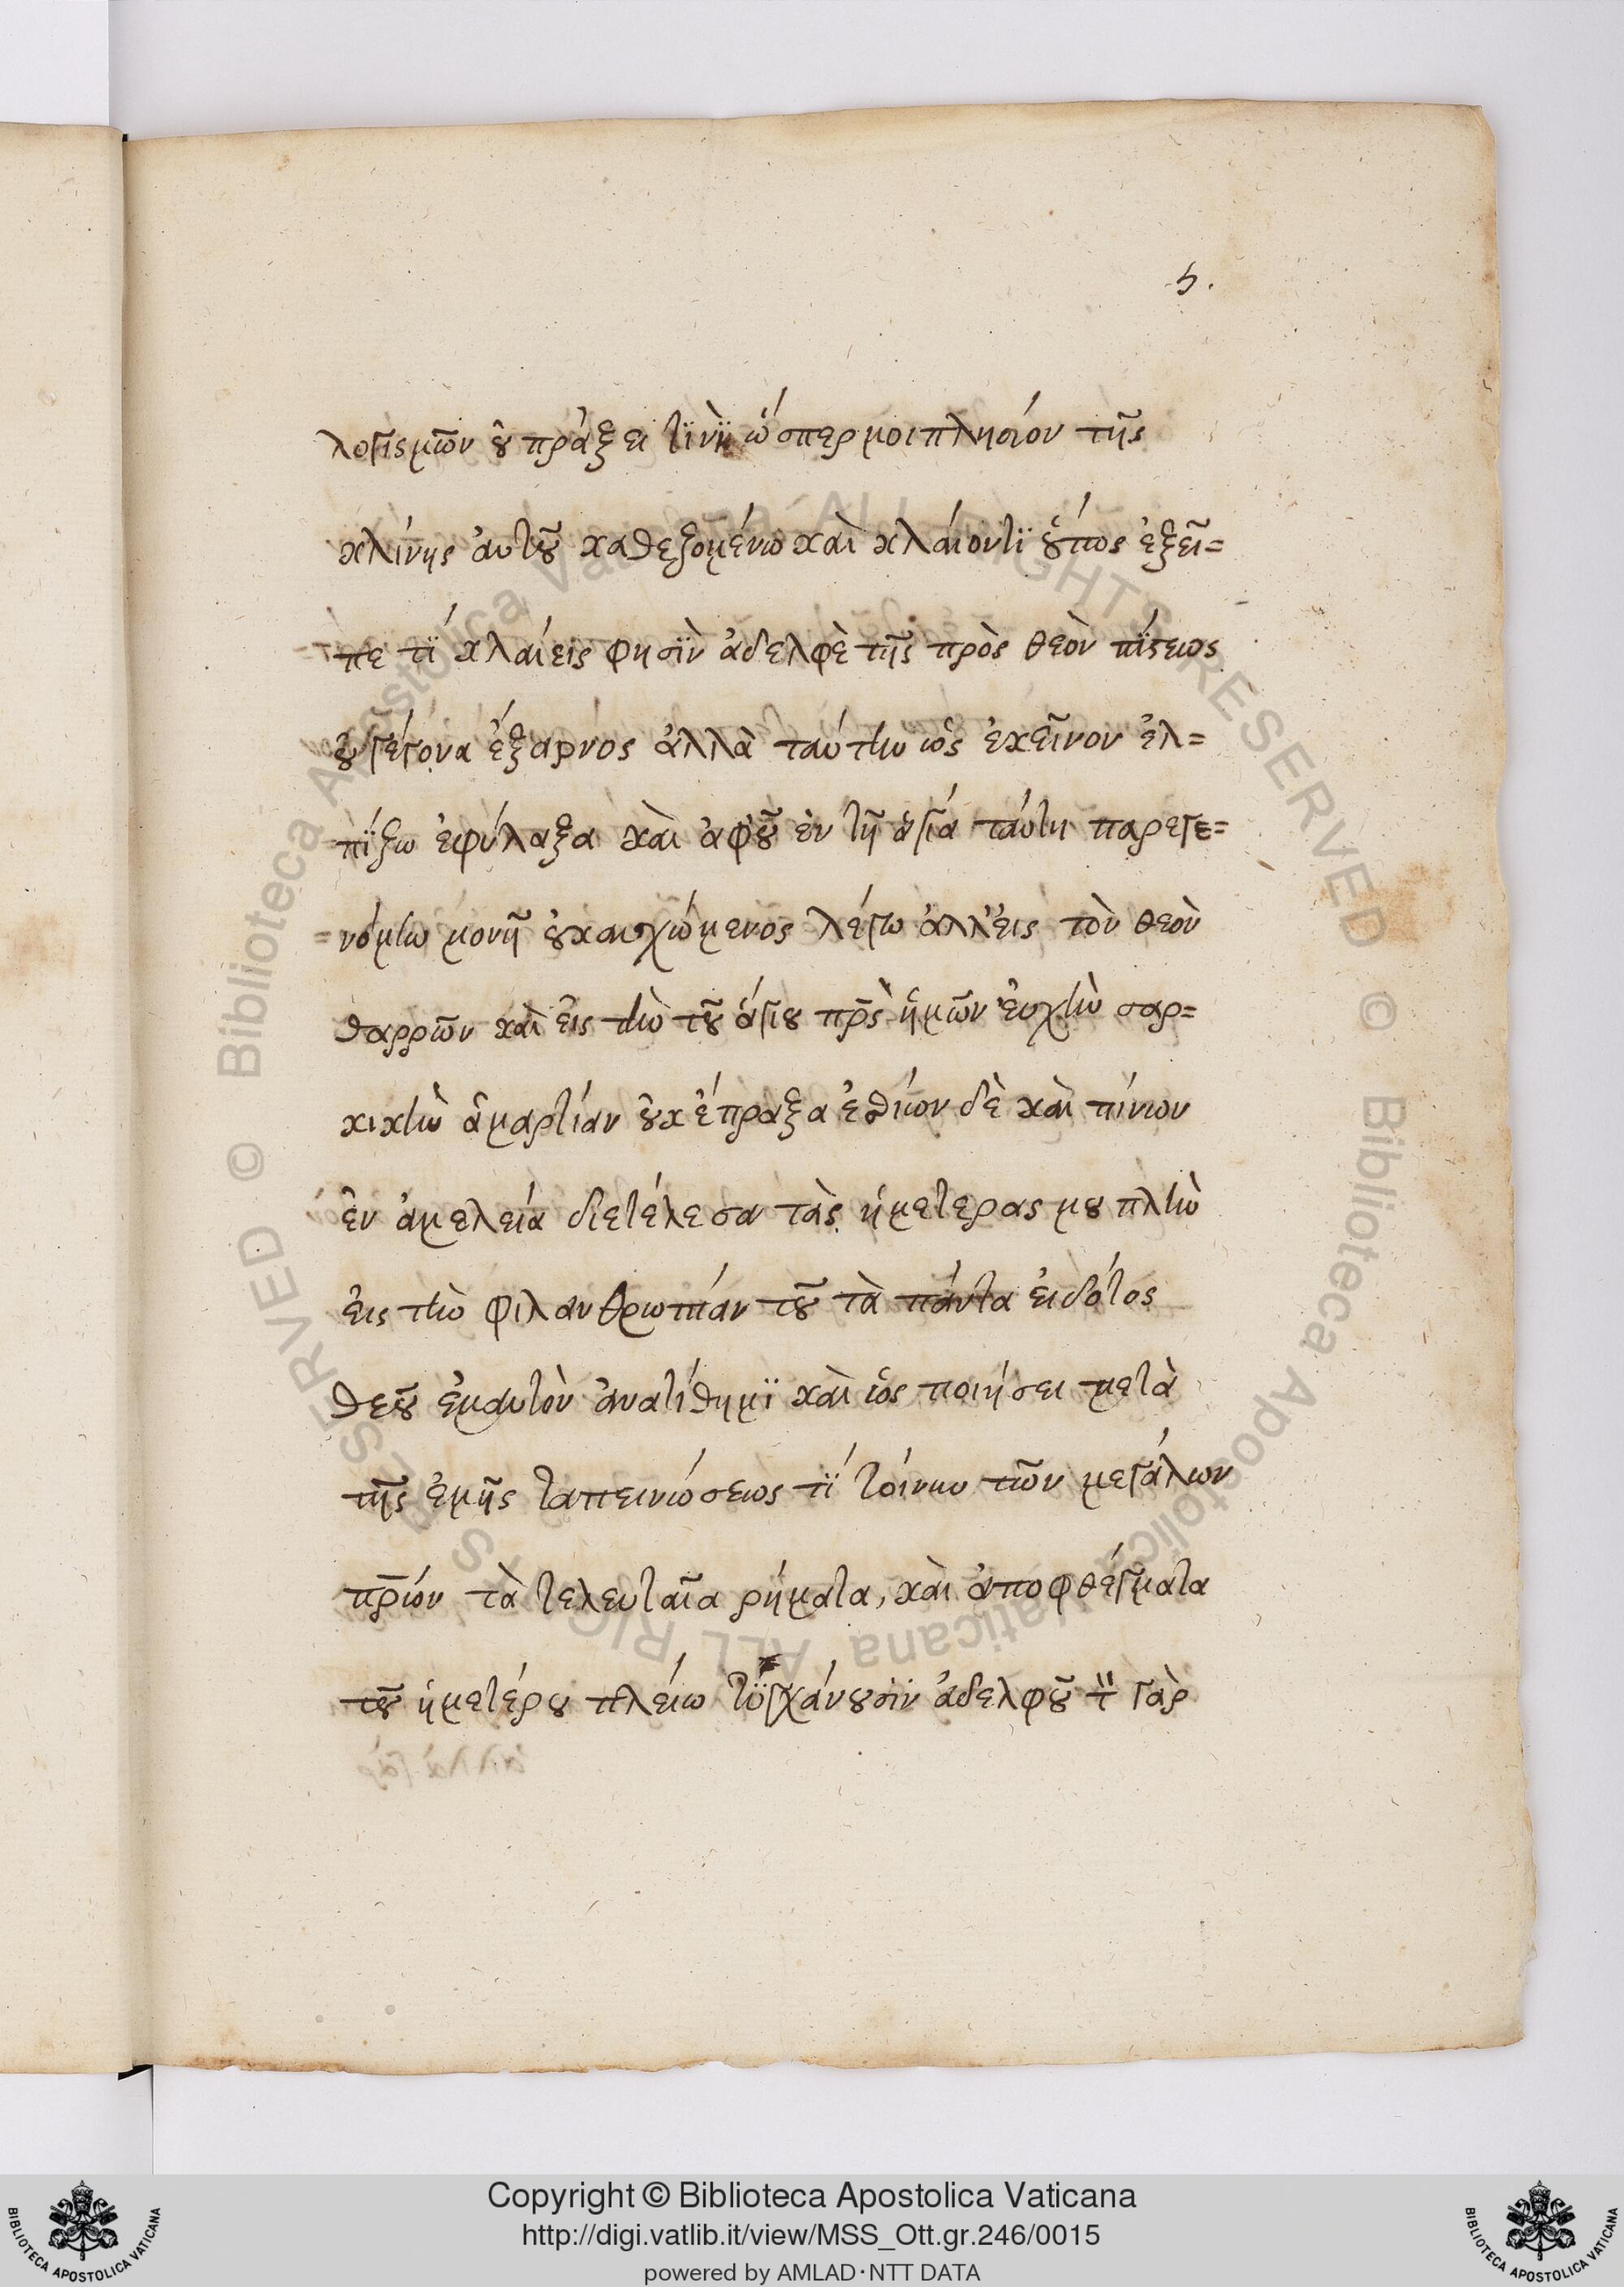 5.
λογισμῶν οὐ πράξει τϊνὶ ὥσπερ μοι πλησιόν τῆς
κλίνης ἀυτοῦ καθεζομένω καὶ κλάιοντϊ ὅυπως ἐξεῖ=
πε τί κλάιεις φησὶν ἀδελφὲ τῆς πρὸς θεὸν πίστεως
οὐ γέγονα ἔξαρνος ἀλλὰ ταύτην ὡς ἐκεῖνον ἐλ=
πίζω ἐφύλαξα καὶ ἀφοῦ ἐν τῆ ἁγία ταύτη παρεγε=
=νόμην μονῆ οὐκαυχώμενος λέγω ἀλλ' ἐις τὸν θεὸν
θαρρῶν καὶ ἐις τὴν τοῦ ἁγίου πρ̅ς ἡμῶν ἐυχὴν σαρ=
κικὴν ἁμαρτίαν οὐκ ἔπραξα ἐσθίων δὲ καὶ πίνων
ἐν ἀμελεία διετέλεσα τὰς ἡμετερας μου πλὴν
ἐις τὴν φιλανθρωπίαν τοῦ τὰ πάντα ἐιδότος
θεοῦ ἐμαυτὸν ἀνατίθημϊ καὶ ὡς ποιήσει μετὰ
τῆς ἐμῆς ταπεινώσεως τί τοίνυν τῶν μεγάλων
πρ̅ων τὰ τελευταῖα ρήματα, καὶ ἀποφθέγματα
τοῦ ἡμετέρου πλείω τϋγχάνουσϊν ἀδελφοῦ τ̈ γὰρ
Copyright © Biblioteca Apostolica Vaticana
http://digi.vatlib.it/view/MSS_Ott.gr.246/0015
powered by AMLAD·NTT DATA